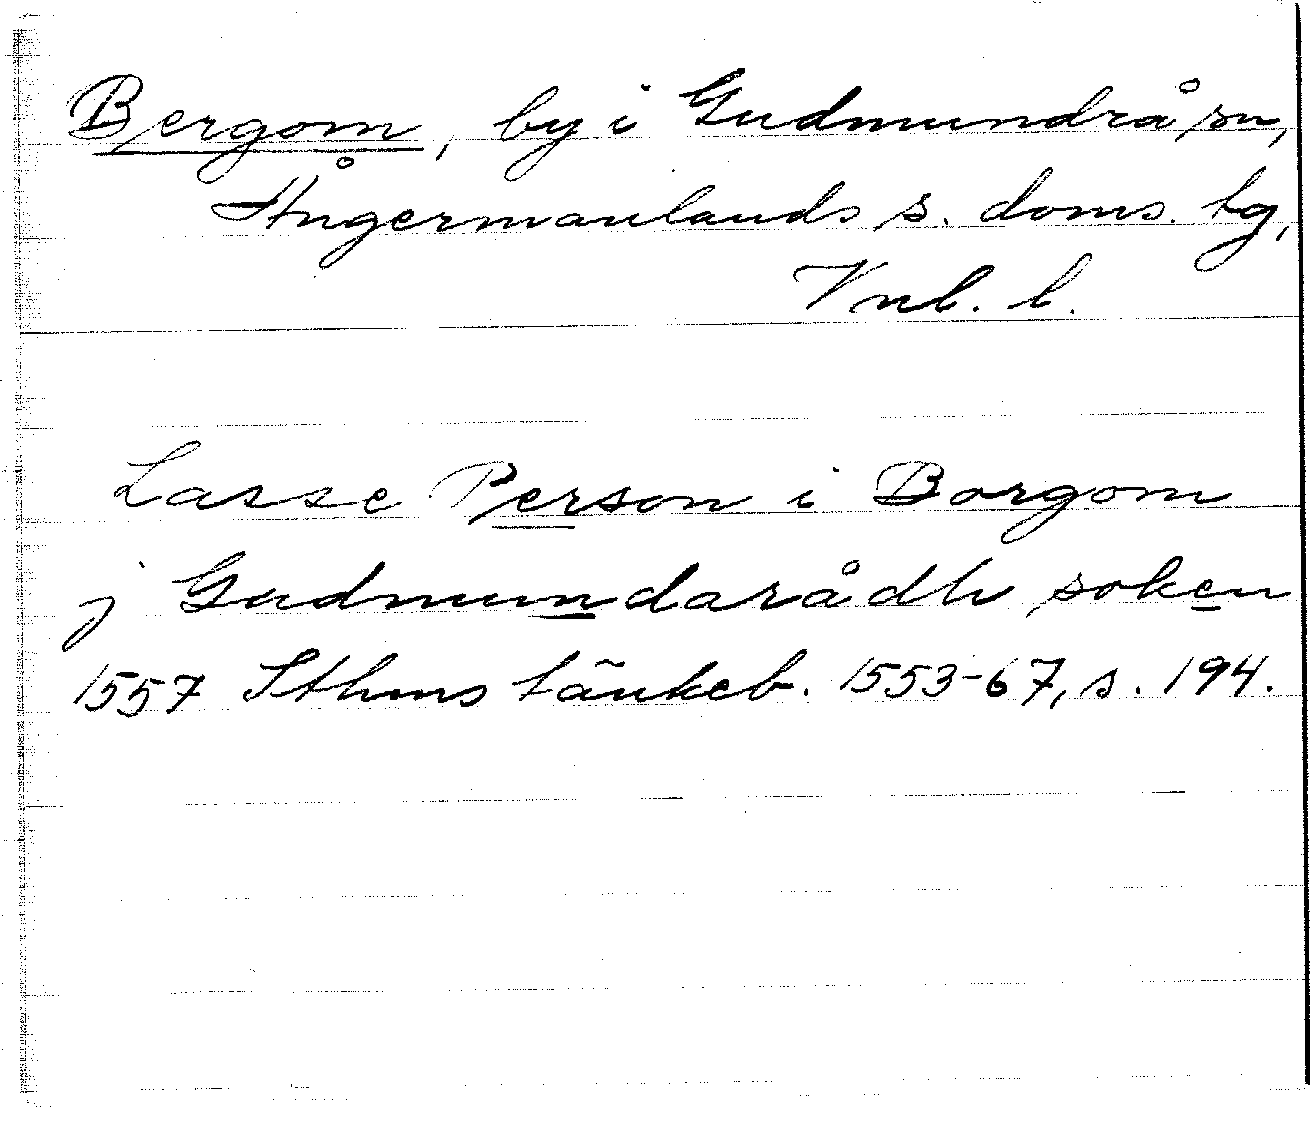 Bergom, by i Gudmundrå sn,
Ångermanlands s. doms. tg,
Vnl. l.
Lasse Person i Borgom
j Gudmundarådh soken
1557 Sthms tänkeb. 1553-67, s. 194.